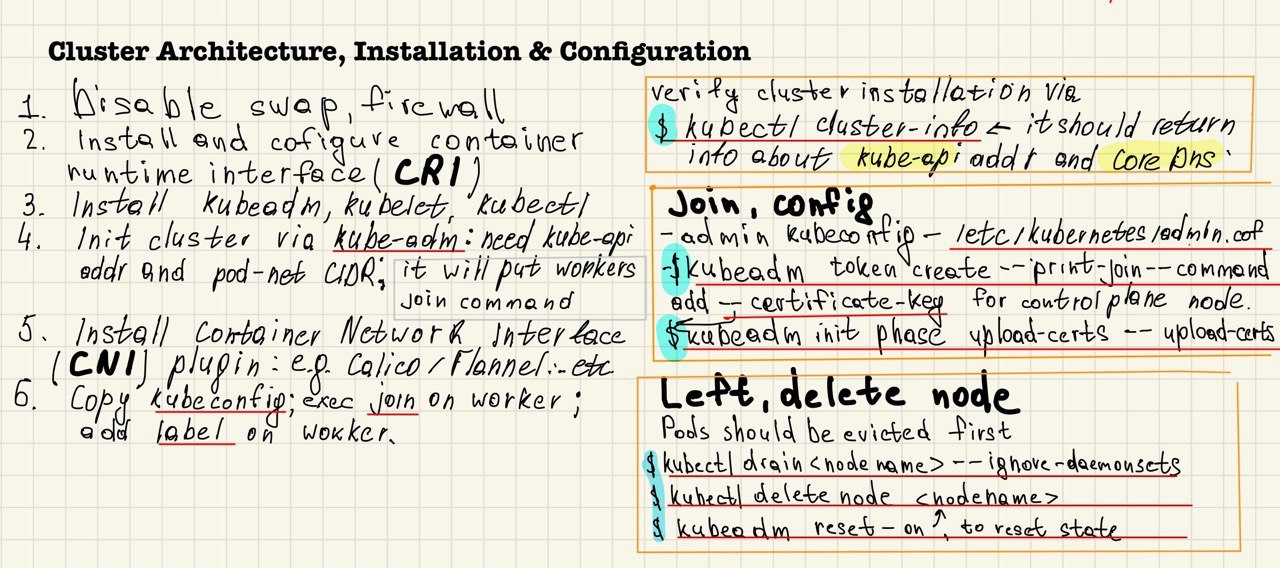 Cluster Architecture, Installation & Configuration
1. Disable swap, firewall
2. Install and cofigure container
runtime interface (CRI)
3. Install kubeadm, kubelet, kubectl
4. Init cluster via kube-adm: need kube-api
addr and pod-net CIDR; it will put workers
join command
5. Install Container Network Interface
(CNI) plugin: e.g. Calico/Flannel... etc
6. Copy kubeconfig; exec join on worker;
add label on worker.
verify cluster installation via
$ kubectl cluster-info ← it should return
info about kube-api addr and Core Dns.
Join, config
- admin kubeconfig - /etc/kubernetes/admin.cof
-$ kubeadm token create --print-join--command
add -- certificate-key for control plane node.
$ kubeadm init phase upload-certs -- upload-certs
Left, delete node
Pods should be evicted first
$ kubectl drain <node name> --ignore-daemonsets
$ kubectl delete node <nodename>
$ kubeadm reset - on ↑, to reset state